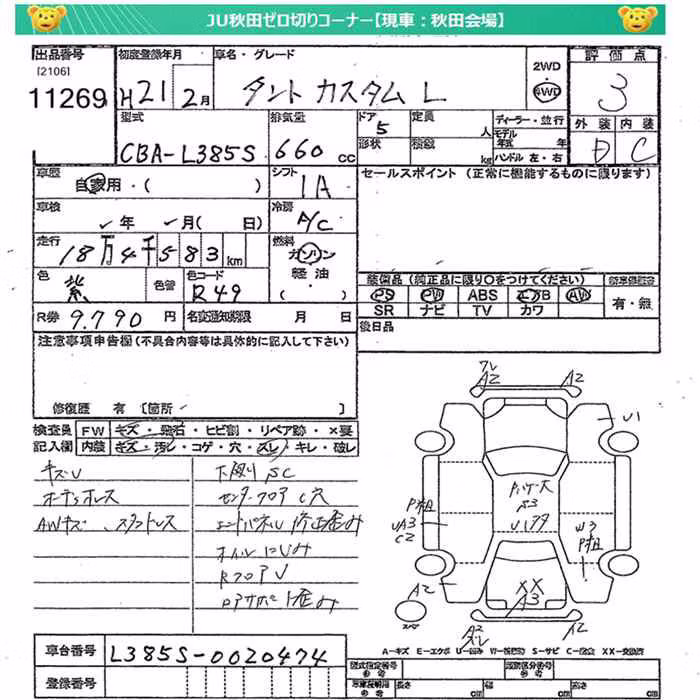 JU秋田ゼロ切りコーナー【現車：秋田会場】
出品番号
[2106]
11269
初度登録年月
H21年2月
車名・グレード
タント カスタム L
2WD
4WD
評価点
3
外装 内装
D C
型式
CBA-L385S
排気量
660 cc
ドア
5
形状
定員
人
積載
kg
ディーラー・並行
モデル年式 年
ハンドル 左・右
車歴
自家用・( )
シフト
IA
車検
年 月( 日)
冷房
A/C
走行
18万4千583km
燃料
ガソリン
軽油・
( )
色
紫
色替
色コード
R49
R券 9.790 円
名変通知期限 月 日
セールスポイント (正常に機能するものに限ります)
装備品 (純正品に限り○をつけてください)
PS PW ABS エアB AW
SR ナビ TV カワ
有・無
後日品
注意事項申告欄(不具合内容等は具体的に記入して下さい)
修復歴 有 [箇所 ]
検査員記入欄
FW キズ・飛石・ヒビ割・リペア跡・×要
内装 キズ・汚レ・コゲ・穴・スレ・キレ・破レ
キズU
オーディオレス
AWキズ スタンドレス
下廻りSC
センターフロアC穴
修正歪み
オイルにじみ
RフロアU
歪み
A2
A2
U1
UA3
C2
W3
A2
XX
A3
A2
A2
A−キズ E−エクボ U−凹み W−補修跡 S−サビ C−腐食 XX−交換済
車台番号
L385S-0020474
登録番号
型式指定番号
類別区分番号
長さ cm 幅 cm 高さ cm